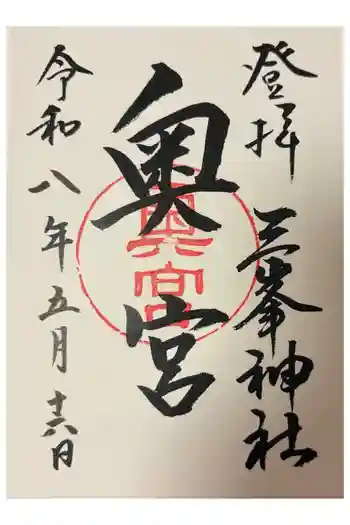 登拝 三峯神社
奥宮
奥宮
令和八年五月十六日